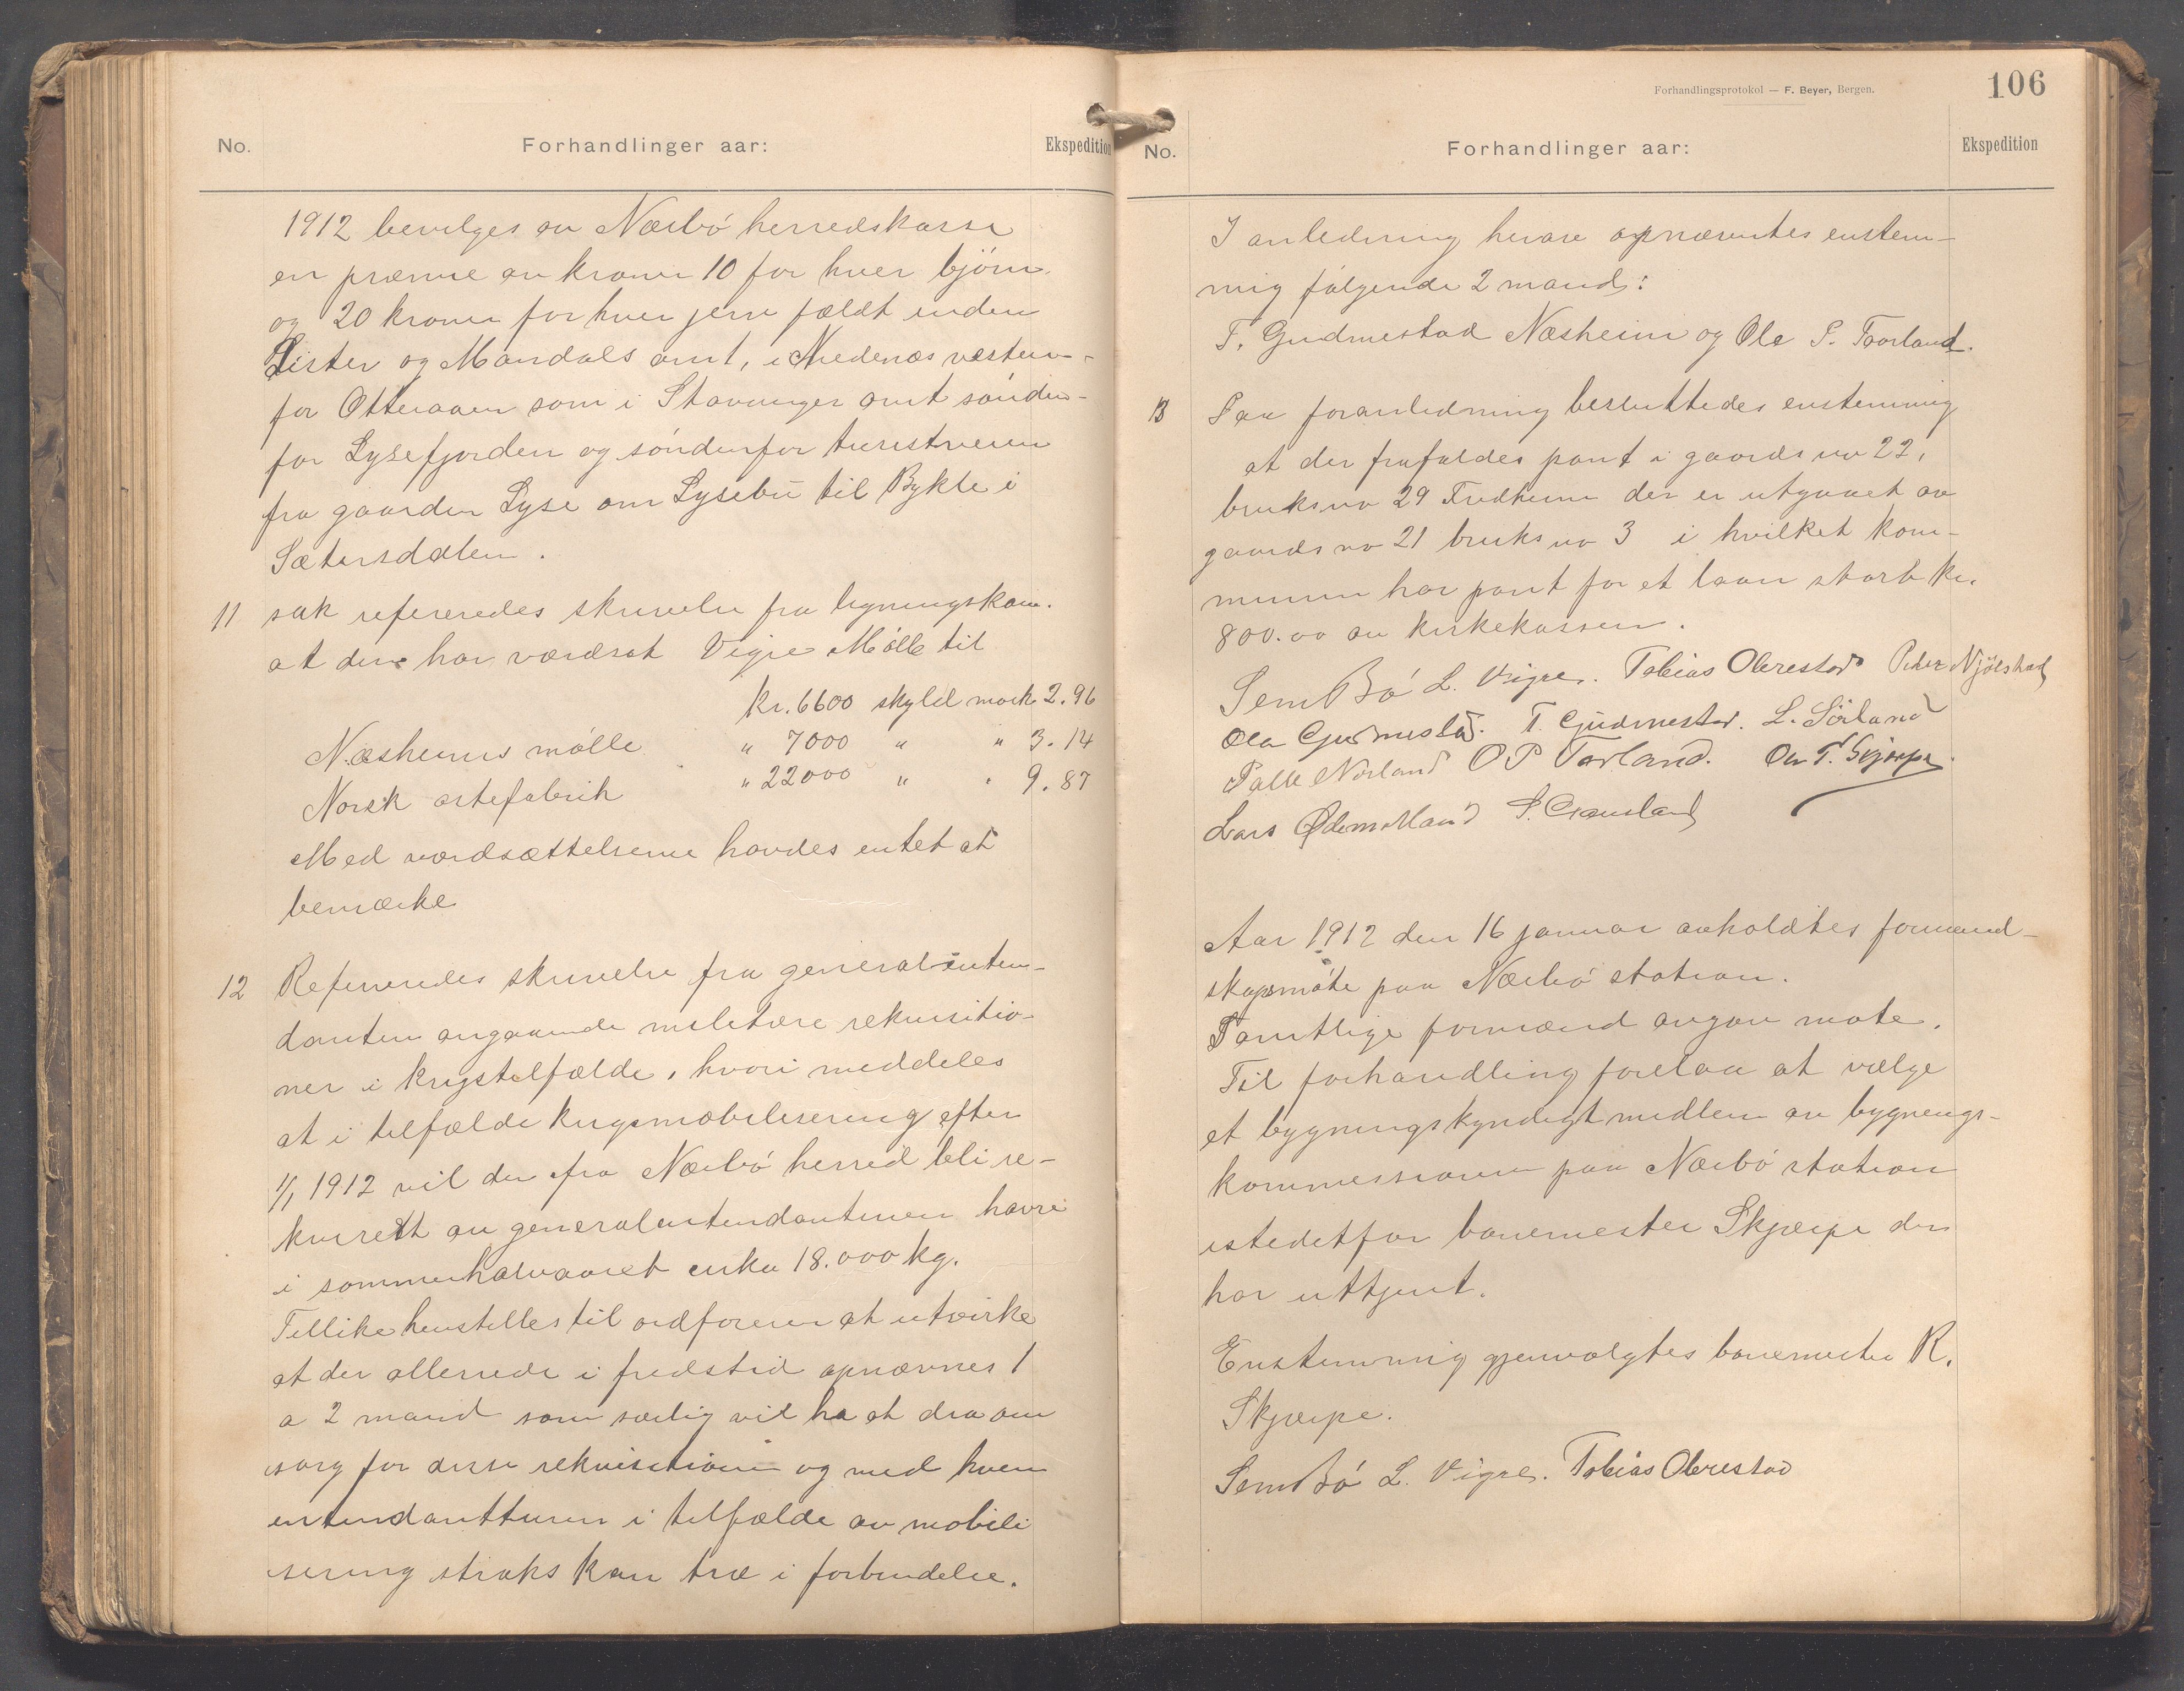 No. Forhandlinger aar: Ekspedition
1912 bevilges av Nærbö herredskasse
en præmie av kroner 10 for hver björn
og 20 kroner for hver jerv fældt inden
Lister og Mandals amt, i Nedenæs vesten-
for Otteraaen som i Stavanger amt sönden-
for Lysefjorden og söndenfor turistveien
fra gaarden Lyse om Lysebu til Bykle i
Sætersdalen.
11 sak refereredes skrivelse fra ligningskom.
at den har værdsat Vigre Mölle til
kr. 6600 skyld mark 2.96
Næsheims mölle " 7000 " " 3.14
Norsk ostefabrik " 22000 " " 9.87
Med værdsættelserne havdes intet at
bemærke
12 Refereredes skrivelse fra generalinten-
danten angaaende militære rekvisitio-
ner i krigstilfælde, hvori meddeles
at i tilfælde krigsmobilisering efter
1/1 1912 vil der fra Nærbö herred bli re-
kvirert av generalintendanturen havre
i sommerhalvaaret cirka 18.000 kg.
Tillike henstilles til ordföreren at utvirke
at der allerede i fredstid opnævnes 1
a 2 mand som særlig vil ha at dra om
sorg for disse rekvisitioner og med hvem
intendantturen i tilfælde av mobili
sering straks kan træ i forbindelse.
Forhandlingsprotokol — F. Beyer, Bergen. 106
No. Forhandlinger aar: Ekspedition
I anledning herav opnævntes enstem-
mig fölgende 2 mand:
T. Gudmestad Næsheim og Ole P. Taarland.
13 Paa foranledning besluttedes enstemmig
at der frafaldes pant i gaards no 22,
bruksno 29 Fredheim der er utgaaet av
gaards no 21 bruks no 3 i hvilket kom-
munen har pant for et laan stort kr.
800.00 av kirkekassen.
Sem Bö L. Vigre. Tobias Obrestad Peder Njölstad
Ola Gudmestad. T. Gudmestad. L. Sörland
Palle Norland O P Tarland. Ole T. Skjærpe.
Lars Ødemotland
Aar 1912 den 16 januar avholdtes formand-
skapsmöte paa Nærbö station.
Samtlige formænd avgav möte.
Til forhandling forelaa at vælge
et bygningskyndigt medlem av bygnings-
kommissionen paa Nærbö station
istedetfor banemester Skjærpe der
har uttjent.
Enstemmig gjenvalgtes banemester R.
Skjærpe.
Sem Bö L. Vigre. Tobias Obrestad